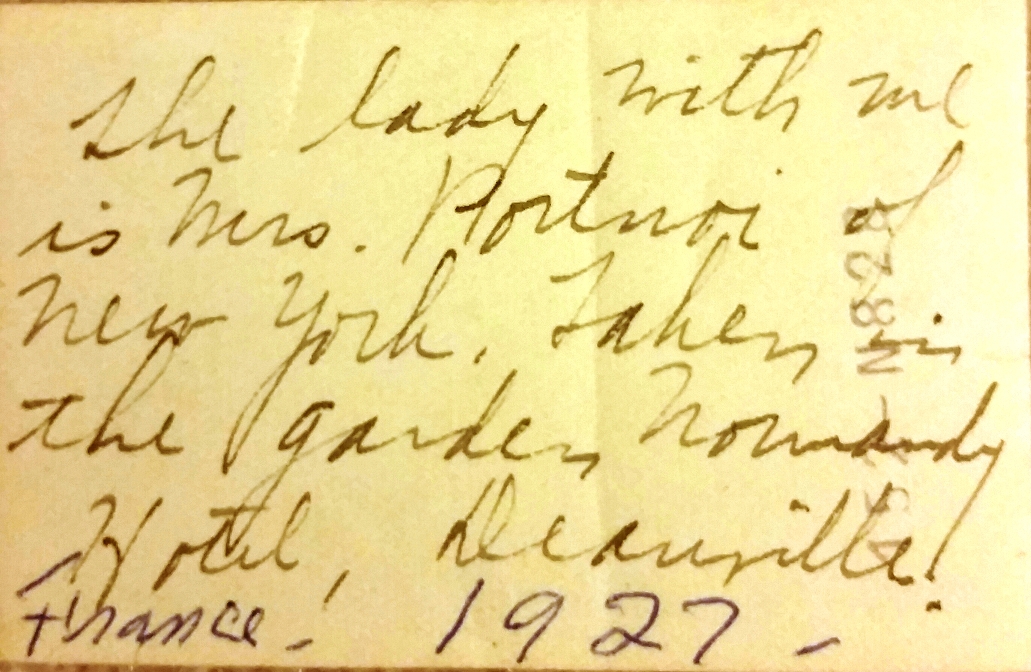 The lady with me
is Mrs. Portnoi of
New York. Taken in
the garden Normandy
Hotel, Deauville!
France. 1927.